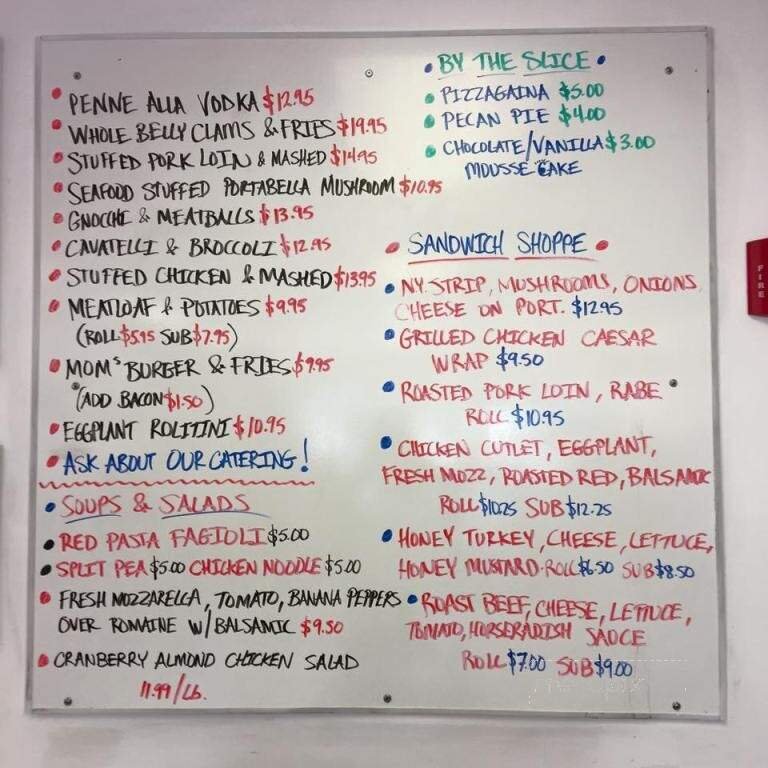 PENNE ALLA VODKA $12.95
WHOLE BELLY CLAMS & FRIES $19.95
STUFFED PORK LOIN & MASHED $14.95
SEAFOOD STUFFED PORTABELLA MUSHROOM $10.95
GNOCCHI & MEATBALLS $13.95
CAVATELLI & BROCCOLI $12.95
STUFFED CHICKEN & MASHED $13.95
MEATLOAF & POTATOES $9.95
(ROLL $5.95 SUB $7.95)
MOM'S BURGER & FRIES $9.95
(ADD BACON $1.50)
EGGPLANT ROLITINI $10.95
ASK ABOUT OUR CATERING!
SOUPS & SALADS
RED PASTA FAGIOLI $5.00
SPLIT PEA $5.00 CHICKEN NOODLE $5.00
FRESH MOZZARELLA, TOMATO, BANANA PEPPERS
OVER ROMAINE W/BALSAMIC $9.50
CRANBERRY ALMOND CHICKEN SALAD
11.99/LB.
BY THE SLICE
PIZZAGAINA $5.00
PECAN PIE $4.00
CHOCOLATE/VANILLA $3.00
MOUSSE CAKE
SANDWICH SHOPPE
NY STRIP, MUSHROOMS, ONIONS
CHEESE ON PORT. $12.95
GRILLED CHICKEN CAESAR
WRAP $9.50
ROASTED PORK LOIN, RABE
ROLL $10.95
CHICKEN CUTLET, EGGPLANT,
FRESH MOZZ, ROASTED RED, BALSAMIC
ROLL $10.25 SUB $12.25
HONEY TURKEY, CHEESE, LETTUCE,
HONEY MUSTARD-ROLL $6.50 SUB $8.50
ROAST BEEF, CHEESE, LETTUCE,
TOMATO, HORSERADISH SAUCE
ROLL $7.00 SUB $9.00
FIRE